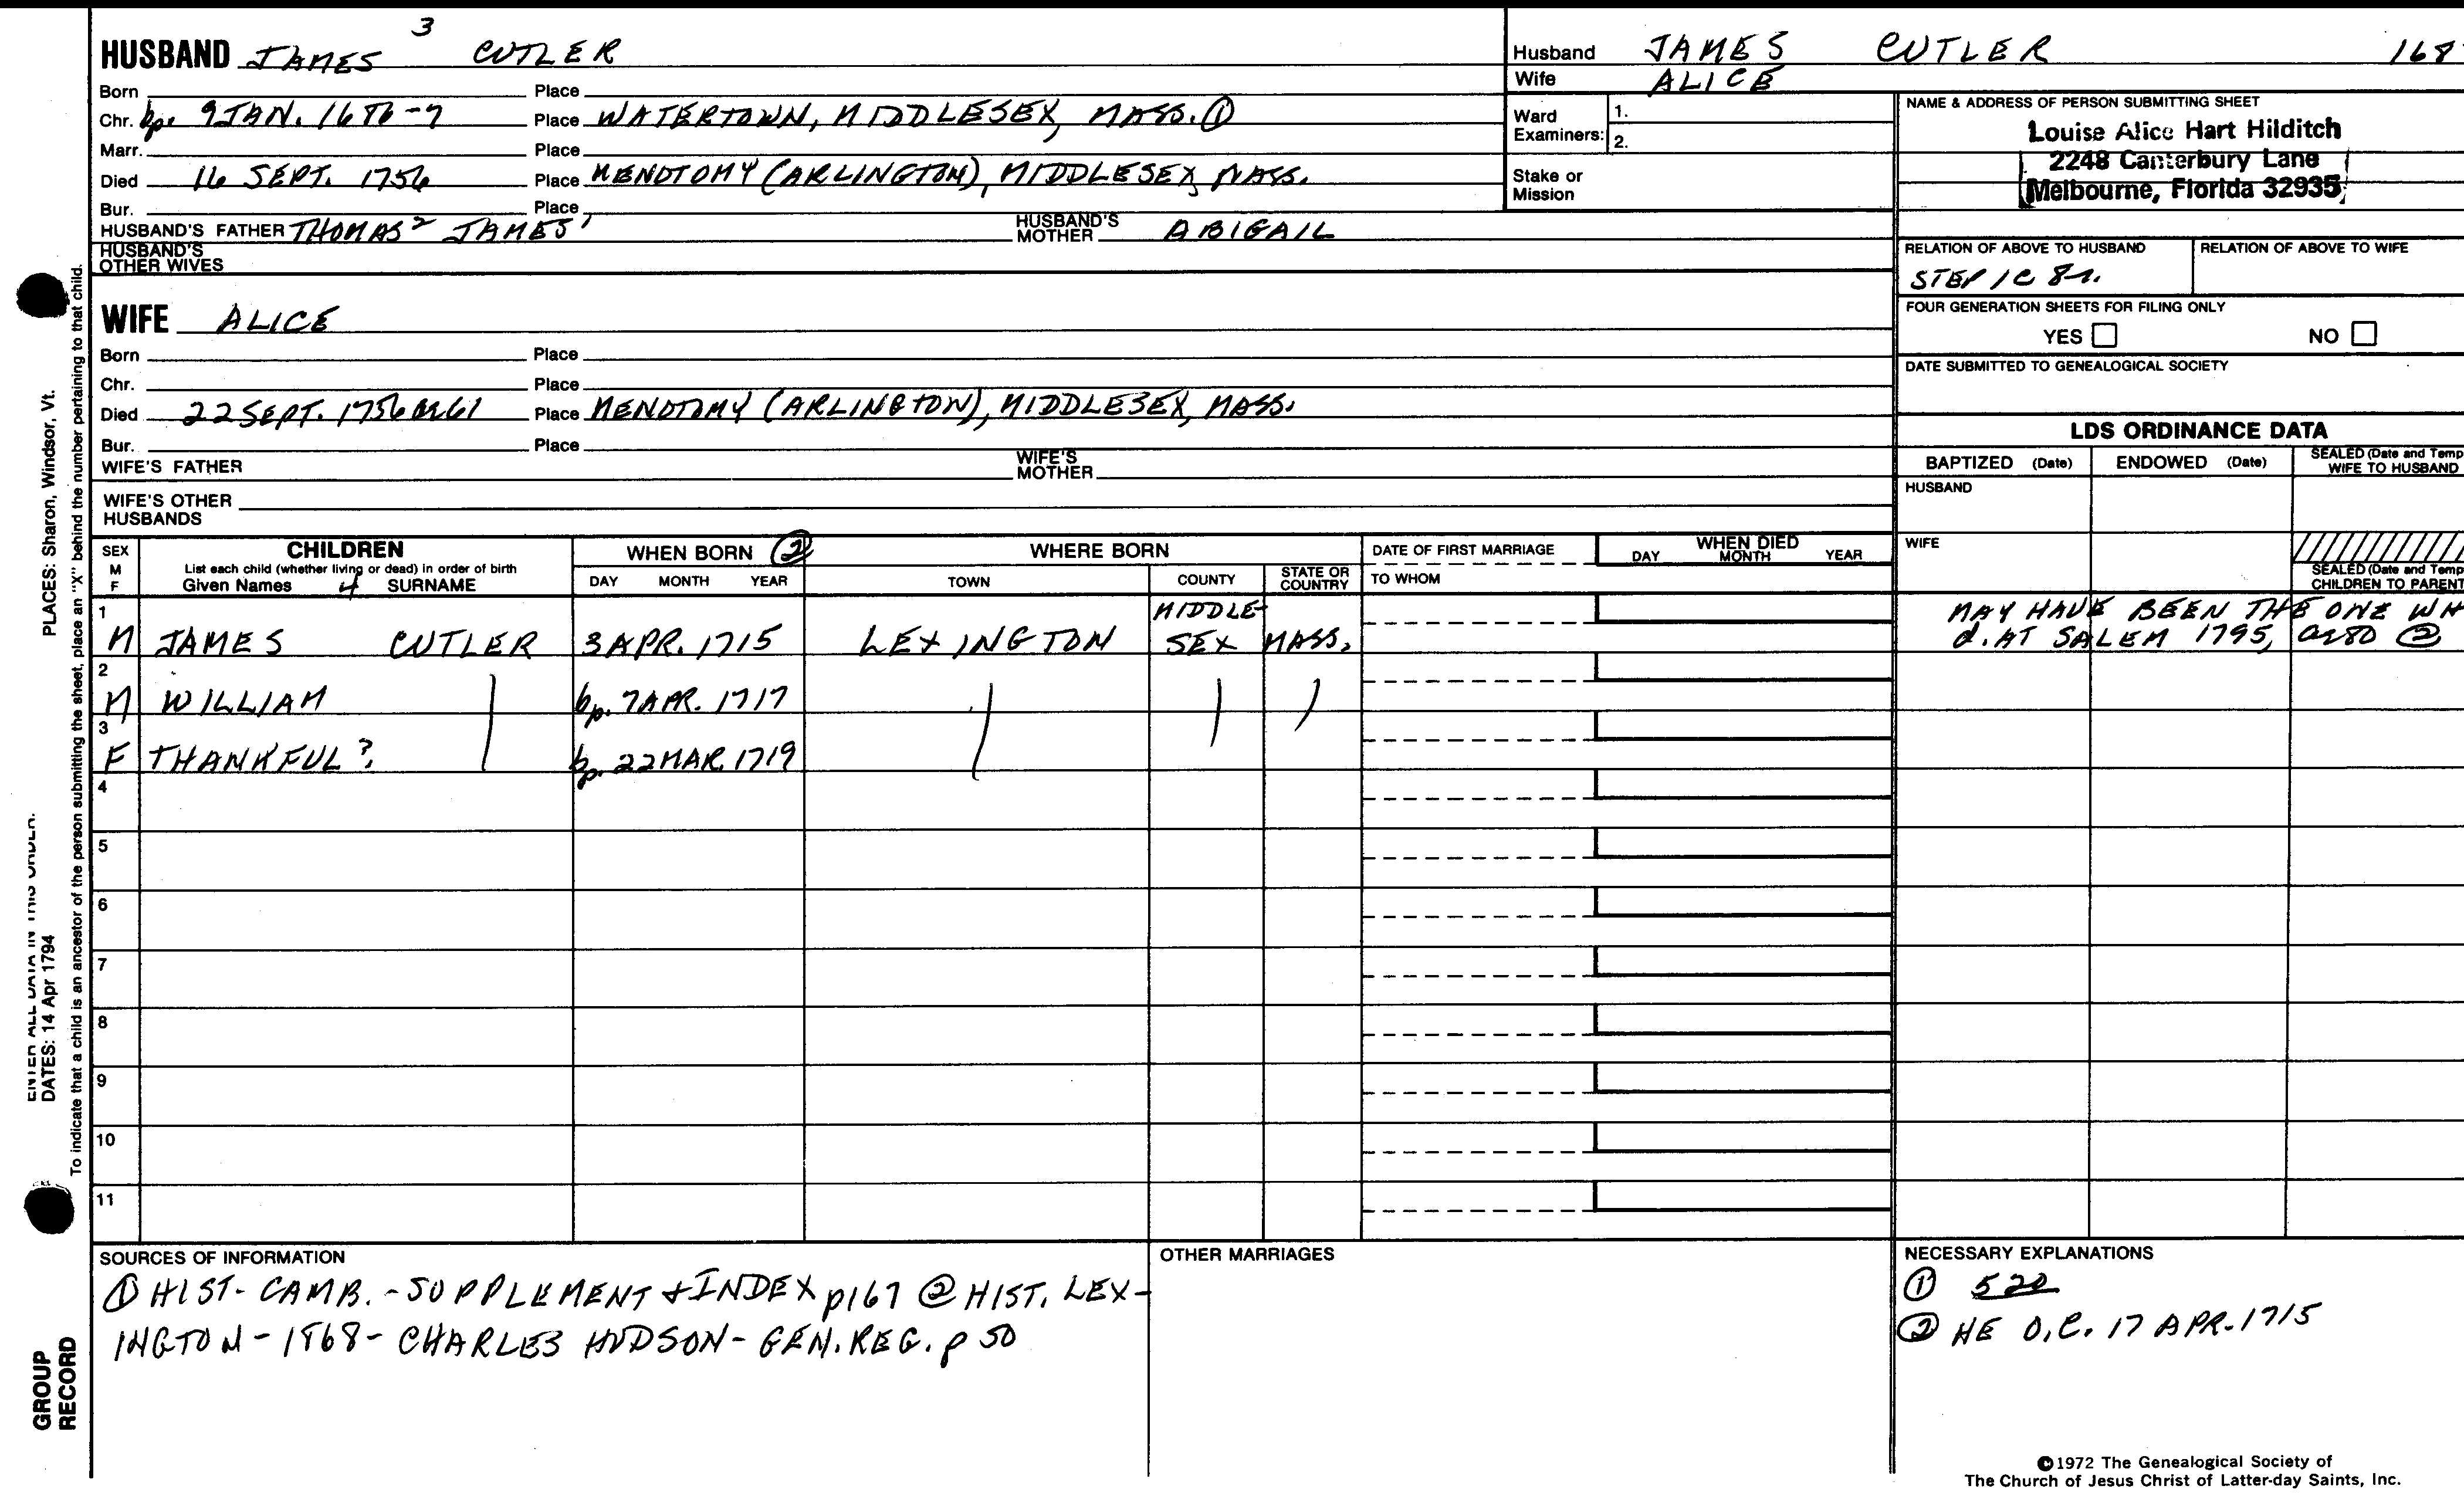 3
HUSBAND JAMES CUTLER
Born Place
Chr. bp. 9 JAN. 1686-7 Place WATERTOWN, MIDDLESEX, MASS. ①
Marr. Place
Died 16 SEPT. 1756 Place MENOTOMY (ARLINGTON), MIDDLESEX, MASS.
Bur. Place
HUSBAND'S FATHER THOMAS² JAMES¹ HUSBAND'S MOTHER ABIGAIL
HUSBAND'S
OTHER WIVES
WIFE ALICE
Born Place
Chr. Place
Died 22 SEPT. 1756 or 61 Place MENOTOMY (ARLINGTON), MIDDLESEX, MASS.
Bur. Place
WIFE'S FATHER WIFE'S MOTHER
WIFE'S OTHER
HUSBANDS
Husband JAMES CUTLER 168
Wife ALICE
Ward
Examiners:
1.
2.
Stake or
Mission
NAME & ADDRESS OF PERSON SUBMITTING SHEET
Louise Alice Hart Hilditch
2248 Canterbury Lane
Melbourne, Florida 32935
RELATION OF ABOVE TO HUSBAND RELATION OF ABOVE TO WIFE
STEP 1C 8r.
FOUR GENERATION SHEETS FOR FILING ONLY
YES NO
DATE SUBMITTED TO GENEALOGICAL SOCIETY
LDS ORDINANCE DATA
BAPTIZED (Date) ENDOWED (Date) SEALED (Date and Temp
WIFE TO HUSBAND
HUSBAND
WIFE
SEALED (Date and Temp
CHILDREN TO PARENT
SEX
M
F
CHILDREN
List each child (whether living or dead) in order of birth
Given Names 4 SURNAME
WHEN BORN ②
DAY MONTH YEAR
WHERE BORN
TOWN COUNTY STATE OR
COUNTRY
DATE OF FIRST MARRIAGE
TO WHOM
WHEN DIED
DAY MONTH YEAR
1
M JAMES CUTLER 3 APR. 1715 LEXINGTON MIDDLE-
SEX MASS.
MAY HAVE BEEN THE ONE WH
d. AT SALEM 1795, ae 80 ②
2
M WILLIAM bp. 7 APR. 1717
3
F THANKFUL? bp. 22 MAR. 1719
4
5
6
7
8
9
10
11
SOURCES OF INFORMATION
① HIST- CAMB. - SUPPLEMENT & INDEX p167 ② HIST. LEX-
INGTON - 1868 - CHARLES HUDSON - GEN. REG. p 50
OTHER MARRIAGES
NECESSARY EXPLANATIONS
① 520
② HE O.C. 17 APR. 1715
©1972 The Genealogical Society of
The Church of Jesus Christ of Latter-day Saints, Inc.
PLACES: Sharon, Windsor, Vt.
ENTER ALL DATA IN THIS ORDER:
DATES: 14 Apr 1794
To indicate that a child is an ancestor of the person submitting the sheet, place an "X" behind the number pertaining to that child.
GROUP
RECORD